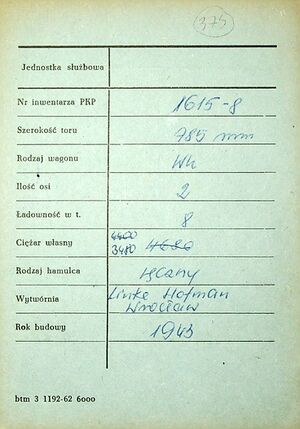 375
Jednostka służbowa
Nr inwentarza PKP 1615-8
Szerokość toru 785 mm
Rodzaj wagonu Wk
Ilość osi 2
Ładowność w t. 8
Ciężar własny 4400 4680
3480
Rodzaj hamulca ręczny
Wytwórnia Linke Hofman
Wrocław
Rok budowy 1943
btm 3 1192-62 6000